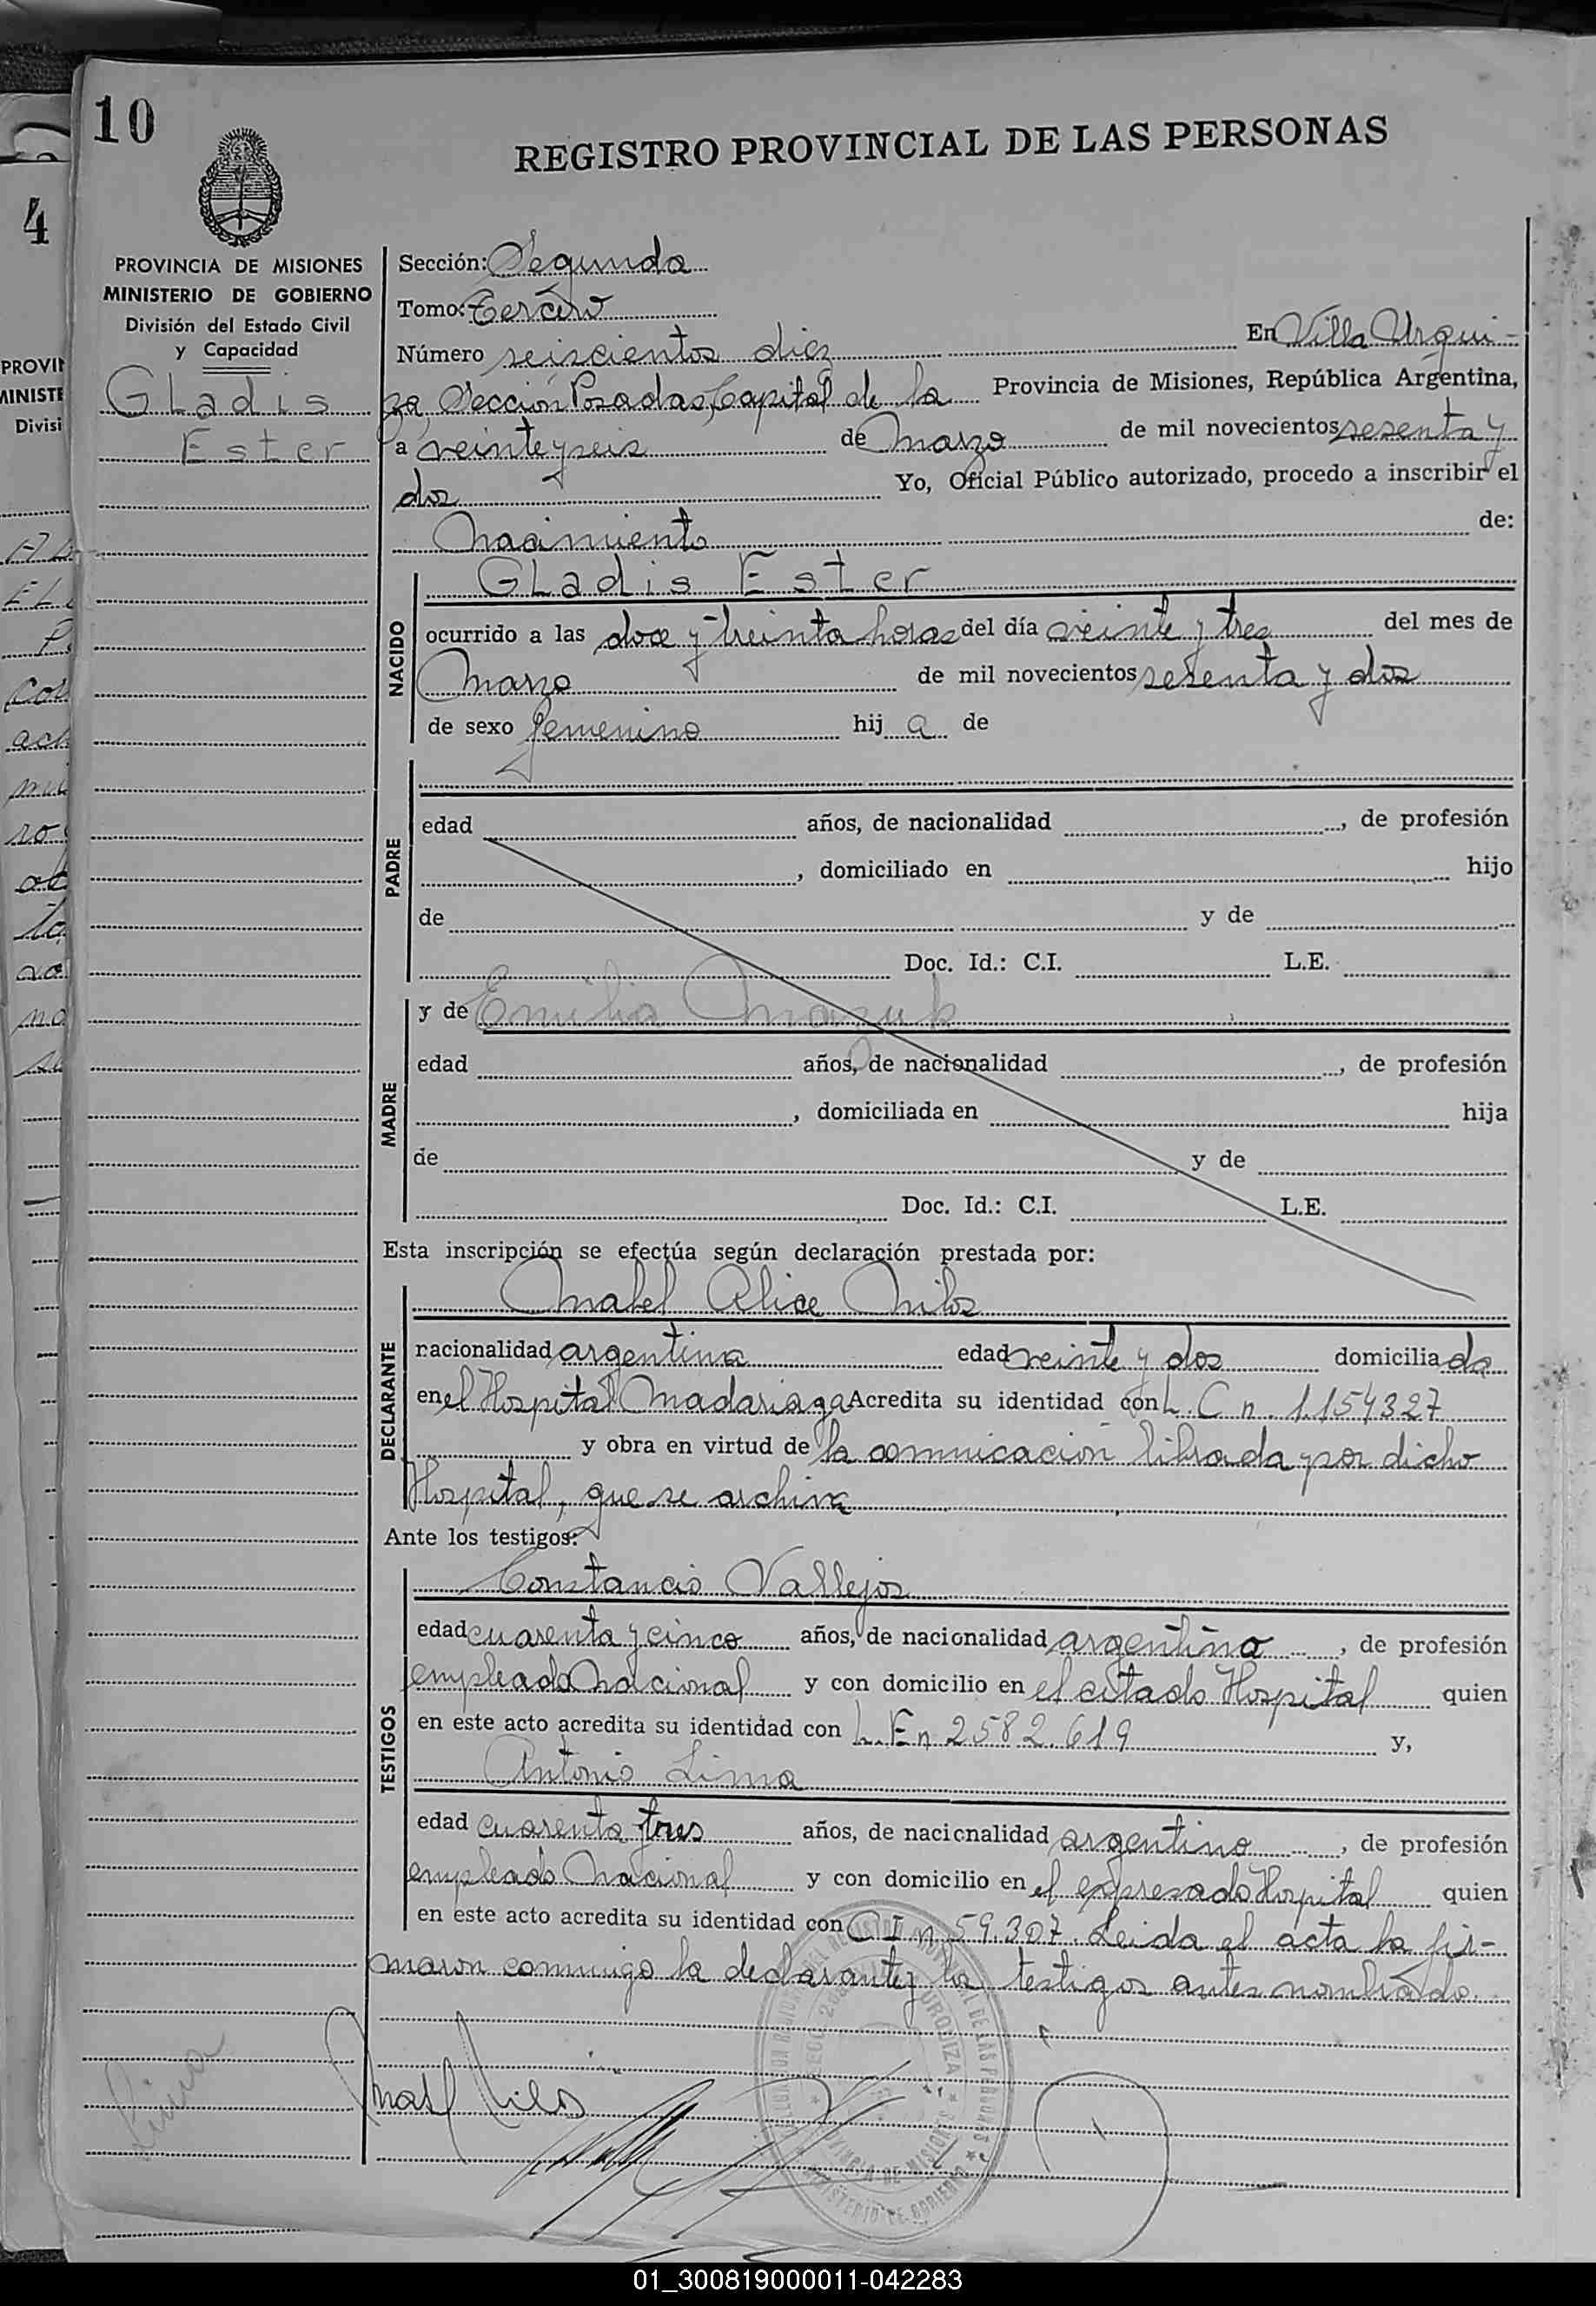 10
REGISTRO PROVINCIAL DE LAS PERSONAS
4
PROVINCIA DE MISIONES
MINISTERIO DE GOBIERNO
División del Estado Civil
y Capacidad
Gladis
Ester
Sección: Segunda
Tomo: Tercero
Número seiscientos diez En Villa Urqui-
za Sección Posadas, Capital de la Provincia de Misiones, República Argentina,
a veinte y seis de Marzo de mil novecientos sesenta y
dos Yo, Oficial Público autorizado, procedo a inscribir el
Nacimiento de:
NACIDO
Gladis Ester
ocurrido a las doce y treinta horas del día veinte y tres del mes de
Marzo de mil novecientos sesenta y dos
de sexo femenino hij a de
PADRE
edad años, de nacionalidad , de profesión
, domiciliado en hijo
de y de
Doc. Id.: C.I. L.E.
MADRE
y de Emilia Mazuk
edad años, de nacionalidad , de profesión
, domiciliada en hija
de y de
Doc. Id.: C.I. L.E.
Esta inscripción se efectúa según declaración prestada por:
DECLARANTE
Mabel Alice Milos
nacionalidad argentina edad veinte y dos domicilia da
en el Hospital Madariaga Acredita su identidad con L. C n. 1.154327
y obra en virtud de la comunicación librada por dicho
Hospital, que se archiva
Ante los testigos:
TESTIGOS
Constancio Vallejos
edad cuarenta y cinco años, de nacionalidad argentino , de profesión
empleado Nacional y con domicilio en el citado Hospital quien
en este acto acredita su identidad con L. E n 2582.619 y,
Antonio Lima
edad cuarenta y tres años, de nacionalidad argentino , de profesión
empleado Nacional y con domicilio en el expresado Hospital quien
en este acto acredita su identidad con C I n 59.307. Leida el acta la fir-
maron conmigo la declarante y los testigos antes nombrado.
Lima
Mabel Milos
01_300819000011-042283